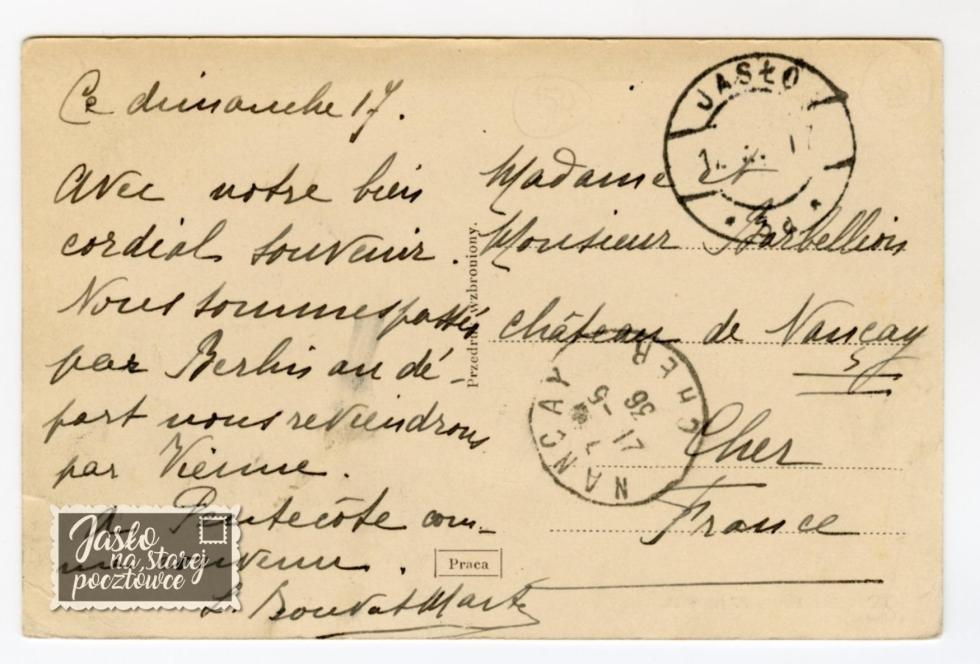 Ce dimanche 17.
Avec notre bien
cordial souvenir.
Nous sommes passés
par Berlin au dé-
part nous reviendrons
par Vienne.
Pentecôte com-
Madame et
Monsieur Barbellion
château de Nançay
Cher
France
JASŁO
17
NANCAY
CHER
17
-5
36
Przedruk wzbroniony.
Praca
Jasło
na starej
pocztówce